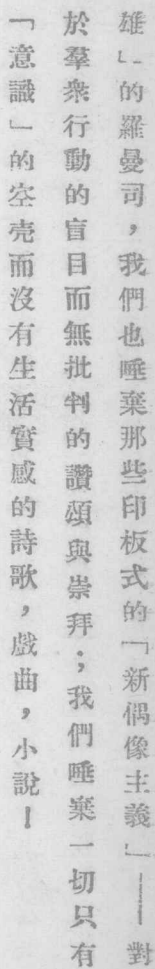 雄」的羅曼司，我們也唾棄那些印板式的「新偶像主義」——對
於羣衆行動的盲目而無批判的讚頌與崇拜；我們唾棄一切只有
「意識」的空壳而沒有生活實感的詩歌，戲曲，小說！